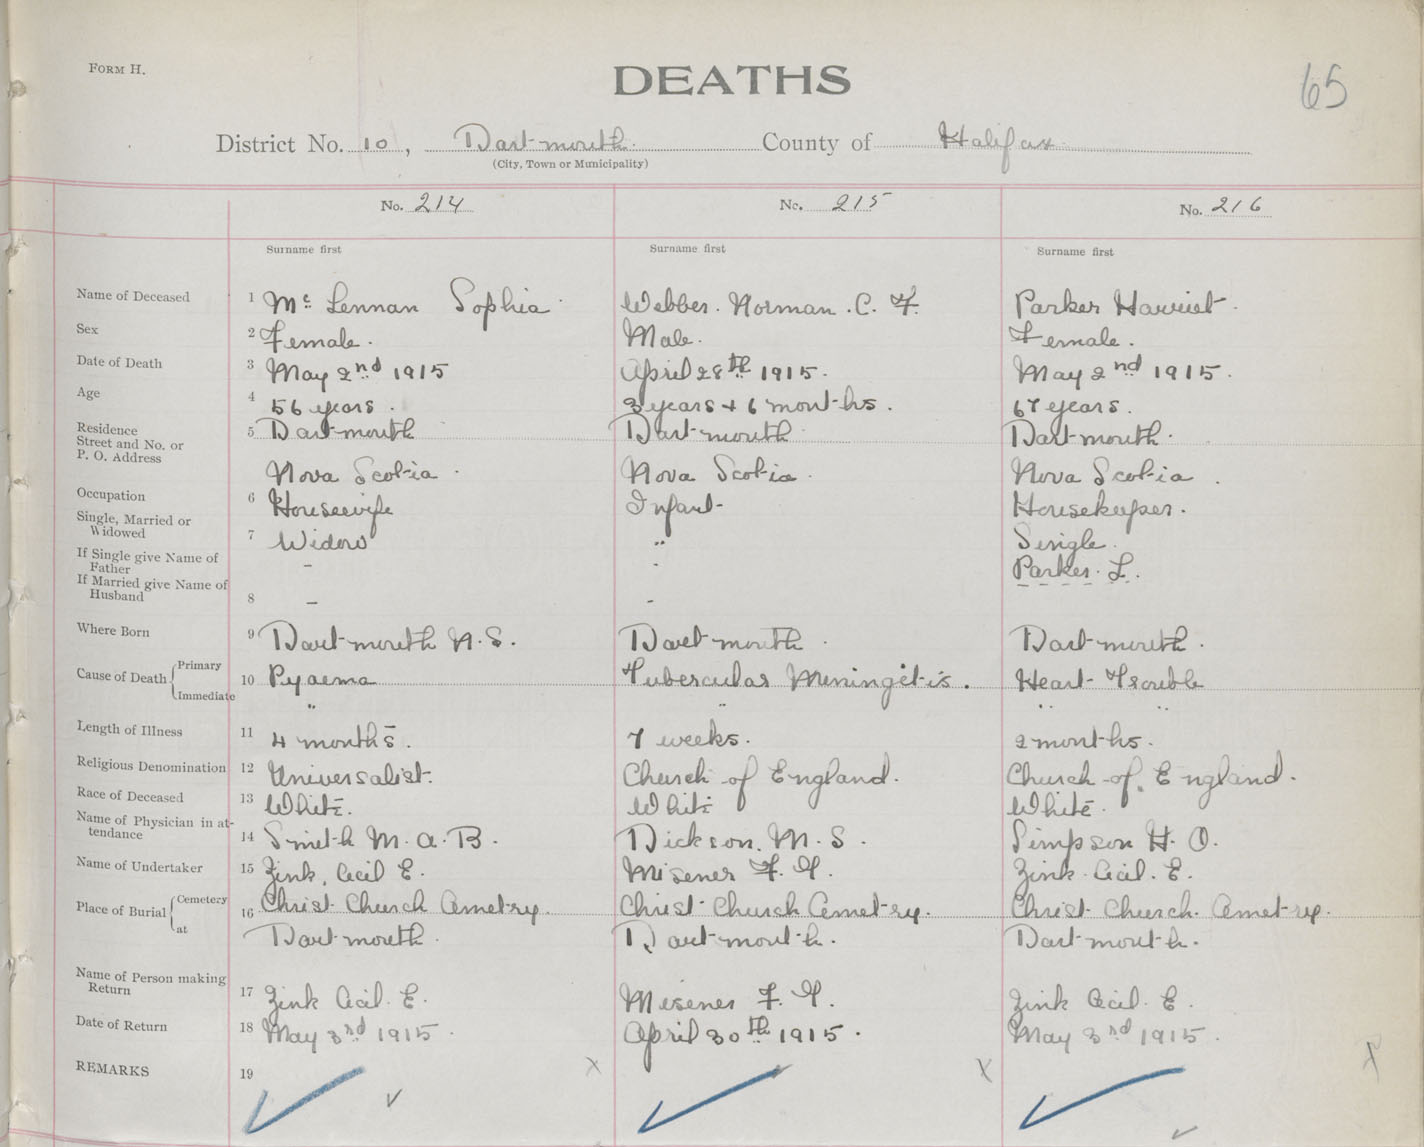 FORM H.
DEATHS
65
District No. 10, Dartmouth. County of Halifax
(City, Town or Municipality)
No. 214 No. 215 No. 216
Surname first Surname first Surname first
Name of Deceased 1 Mc Lennan Sophia Webber. Norman. C. F. Parker Harriet
Sex 2 Female. Male. Female.
Date of Death 3 May 2nd 1915 April 28th 1915. May 2nd 1915.
Age 4 56 years. 3 years + 6 months. 67 years.
Residence
Street and No. or 5 Dartmouth Dartmouth Dartmouth.
P. O. Address
Nova Scotia. Nova Scotia. Nova Scotia.
Occupation 6 Housewife Infant Housekeeper.
Single, Married or
Widowed 7 Widow " Single.
If Single give Name of
Father - - Parker. L.
If Married give Name of
Husband 8 - -
Where Born 9 Dartmouth N. S. Dartmouth. Dartmouth.
Cause of Death { Primary
10 Pyaema Tubercular Meningitis. Heart Trouble
Immediate " " " "
Length of Illness 11 4 months. 7 weeks. 2 months.
Religious Denomination 12 Universalist. Church of England. Church of England.
Race of Deceased 13 White. White White.
Name of Physician in at-
tendance 14 Smith M. A. B. Dickson. M. S. Simpson H. O.
Name of Undertaker 15 Zink, Cecil E. Misener F. G. Zink. Cecil. E.
Place of Burial { Cemetery
16 Christ Church Cemetry. Christ Church Cemetry. Christ Church. Cemetry.
at Dartmouth. Dartmouth. Dartmouth.
Name of Person making
Return 17 Zink Cecil. E. Misener F. G. Zink Cecil. E.
Date of Return 18 May 3rd 1915. April 30th 1915. May 3rd 1915.
REMARKS 19 x x x